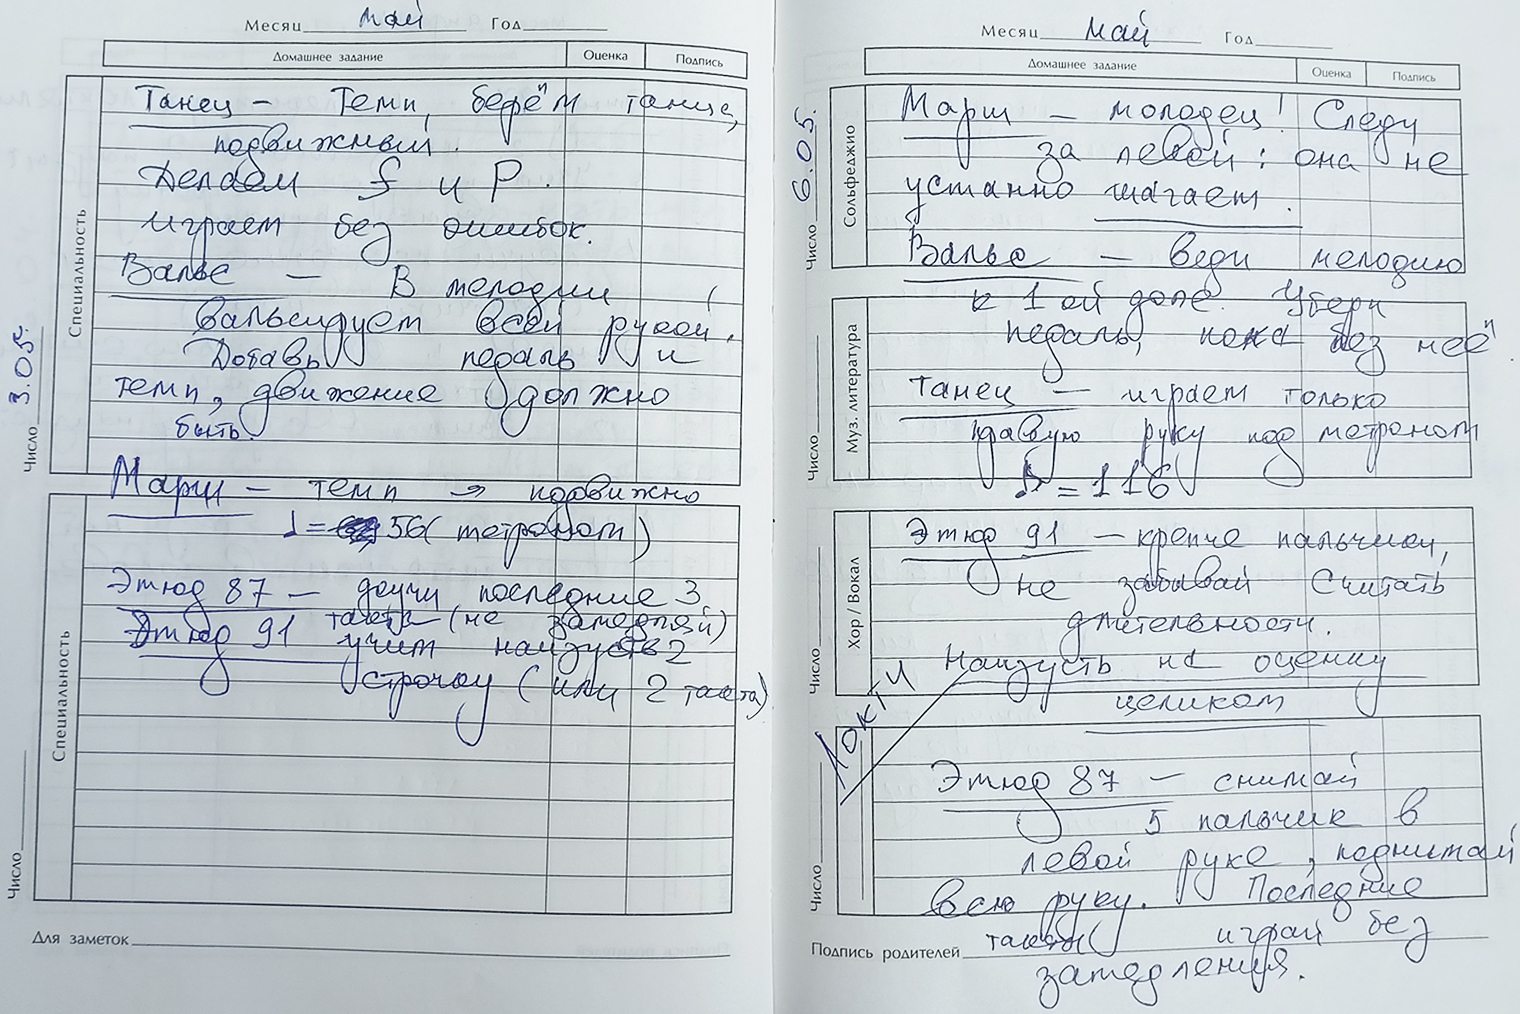 Месяц май Год
Домашнее задание Оценка Подпись
Специальность
Число 3.05.
Танец – Темп берём танца,
подвижный.
Делаем f и P.
играем без ошибок.
Вальс — В мелодии
вальсирует всей рукой.
Добавь педаль и
темп, движение должно
быть.
Марш – темп → подвижно
♩ = 56 (метроном)
Специальность
Число
Этюд 87 – доучи последние 3
такта (не замедляй)
Этюд 91 учим наизусть 2
строчку (или 2 такта)
Для заметок
Месяц май Год
Домашнее задание Оценка Подпись
Число 6.05.
Сольфеджио
Марш – молодец! Следи
за левой: она не
устанно шагает.
Вальс – веди мелодию
к 1 ой доле. Убери
педаль, пока без неё
Число
Муз. литература
Танец – играем только
правую руку под метроном
♪ = 116
Число
Хор / Вокал
Этюд 91 – крепче пальчики,
не забывай считать
длительности.
Наизусть на оценку
целиком
Локти
Число
Этюд 87 – снимай
5 пальчик в
левой руке, поднимай
всю руку. Последние
Подпись родителей такты играй без
замедления.